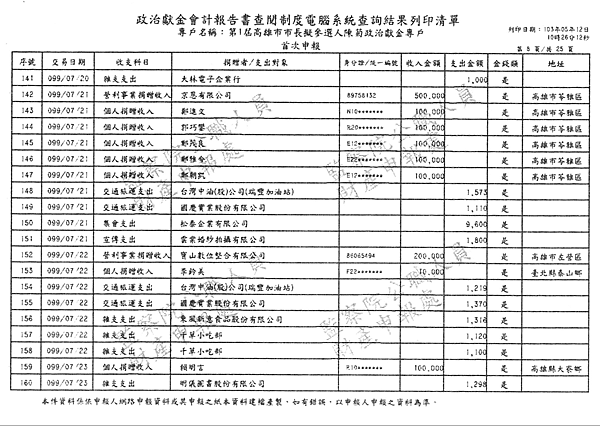 政治獻金會計報告書查閱制度電腦系統查詢結果列印清單
專戶名稱：第1屆高雄市市長擬參選人陳菊政治獻金專戶
首次申報
10時26分12秒
第 8 頁/共 25 頁
序號 交易日期 收支科目 捐贈者/支出對象 身分證/統一編號 收入金額 支出金額 金錢類 地址
141 099/07/20 雜支支出 大林電子企業行 1,000 是
142 099/07/21 營利事業捐贈收入 京恩有限公司 89758132 500,000 是 高雄市苓雅區
143 099/07/21 個人捐贈收入 鄭進文 N10******* 100,000 是 高雄市苓雅區
144 099/07/21 個人捐贈收入 郭巧 R20******* 100,000 是 高雄市苓雅區
145 099/07/21 個人捐贈收入 鄭茂良 E12******* 100,000 是 高雄市苓雅區
146 099/07/21 個人捐贈收入 鄭雅 E22******* 100,000 是 高雄市苓雅區
147 099/07/21 個人捐贈收入 鄭朝 E12******* 100,000 是 高雄市苓雅區
148 099/07/21 交通旅運支出 台灣中油(股)公司(瑞豐加油站) 1,573 是
149 099/07/21 交通旅運支出 國慶實業股份有限公司 1,110 是
150 099/07/21 集會支出 松泰企業有限公司 9,600 是
151 099/07/21 宣傳支出 雲裳婚紗拍攝有限公司 1,800 是
152 099/07/22 營利事業捐贈收入 寶山數位整合有限公司 86065494 200,000 是 高雄市左營區
153 099/07/22 個人捐贈收入 李鈴美 F22******* 10,000 是 臺北縣泰山鄉
154 099/07/22 交通旅運支出 台灣中油(股)公司(瑞豐加油站) 1,219 是
155 099/07/22 交通旅運支出 國慶實業股份有限公司 1,370 是
156 099/07/22 雜支支出 食品股份有限公司 1,316 是
157 099/07/22 雜支支出 千草小吃部 1,120 是
158 099/07/22 雜支支出 千草小吃部 1,100 是
159 099/07/23 個人捐贈收入 顏明言 R10******* 100,000 是 高雄縣大寮鄉
160 099/07/23 雜支支出 明儀圖書股份有限公司 1,298 是
監察院公職人員
財產申報處
本件資料係依申報人網路申報資料或其申報之紙本資料建檔產製，如有錯誤，以申報人申報之資料為準。